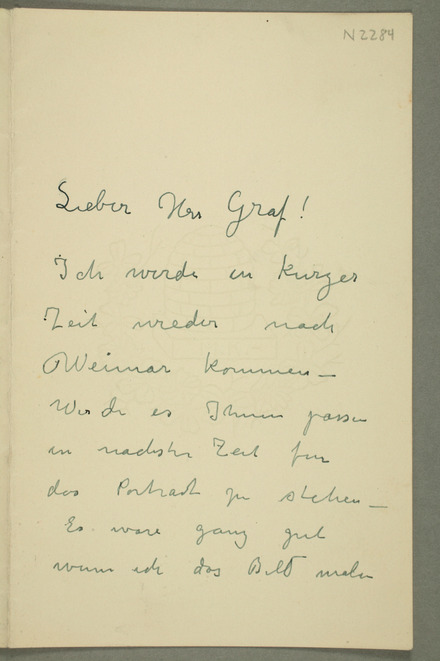 N2284
Lieber Herr Graf!
Ich werde in kurzer
Zeit wieder nach
Weimar kommen –
Würde es Ihnen passen
in nächster Zeit für
das Porträt zu stehen –
Es wäre ganz gut
wenn ich das Bild malen